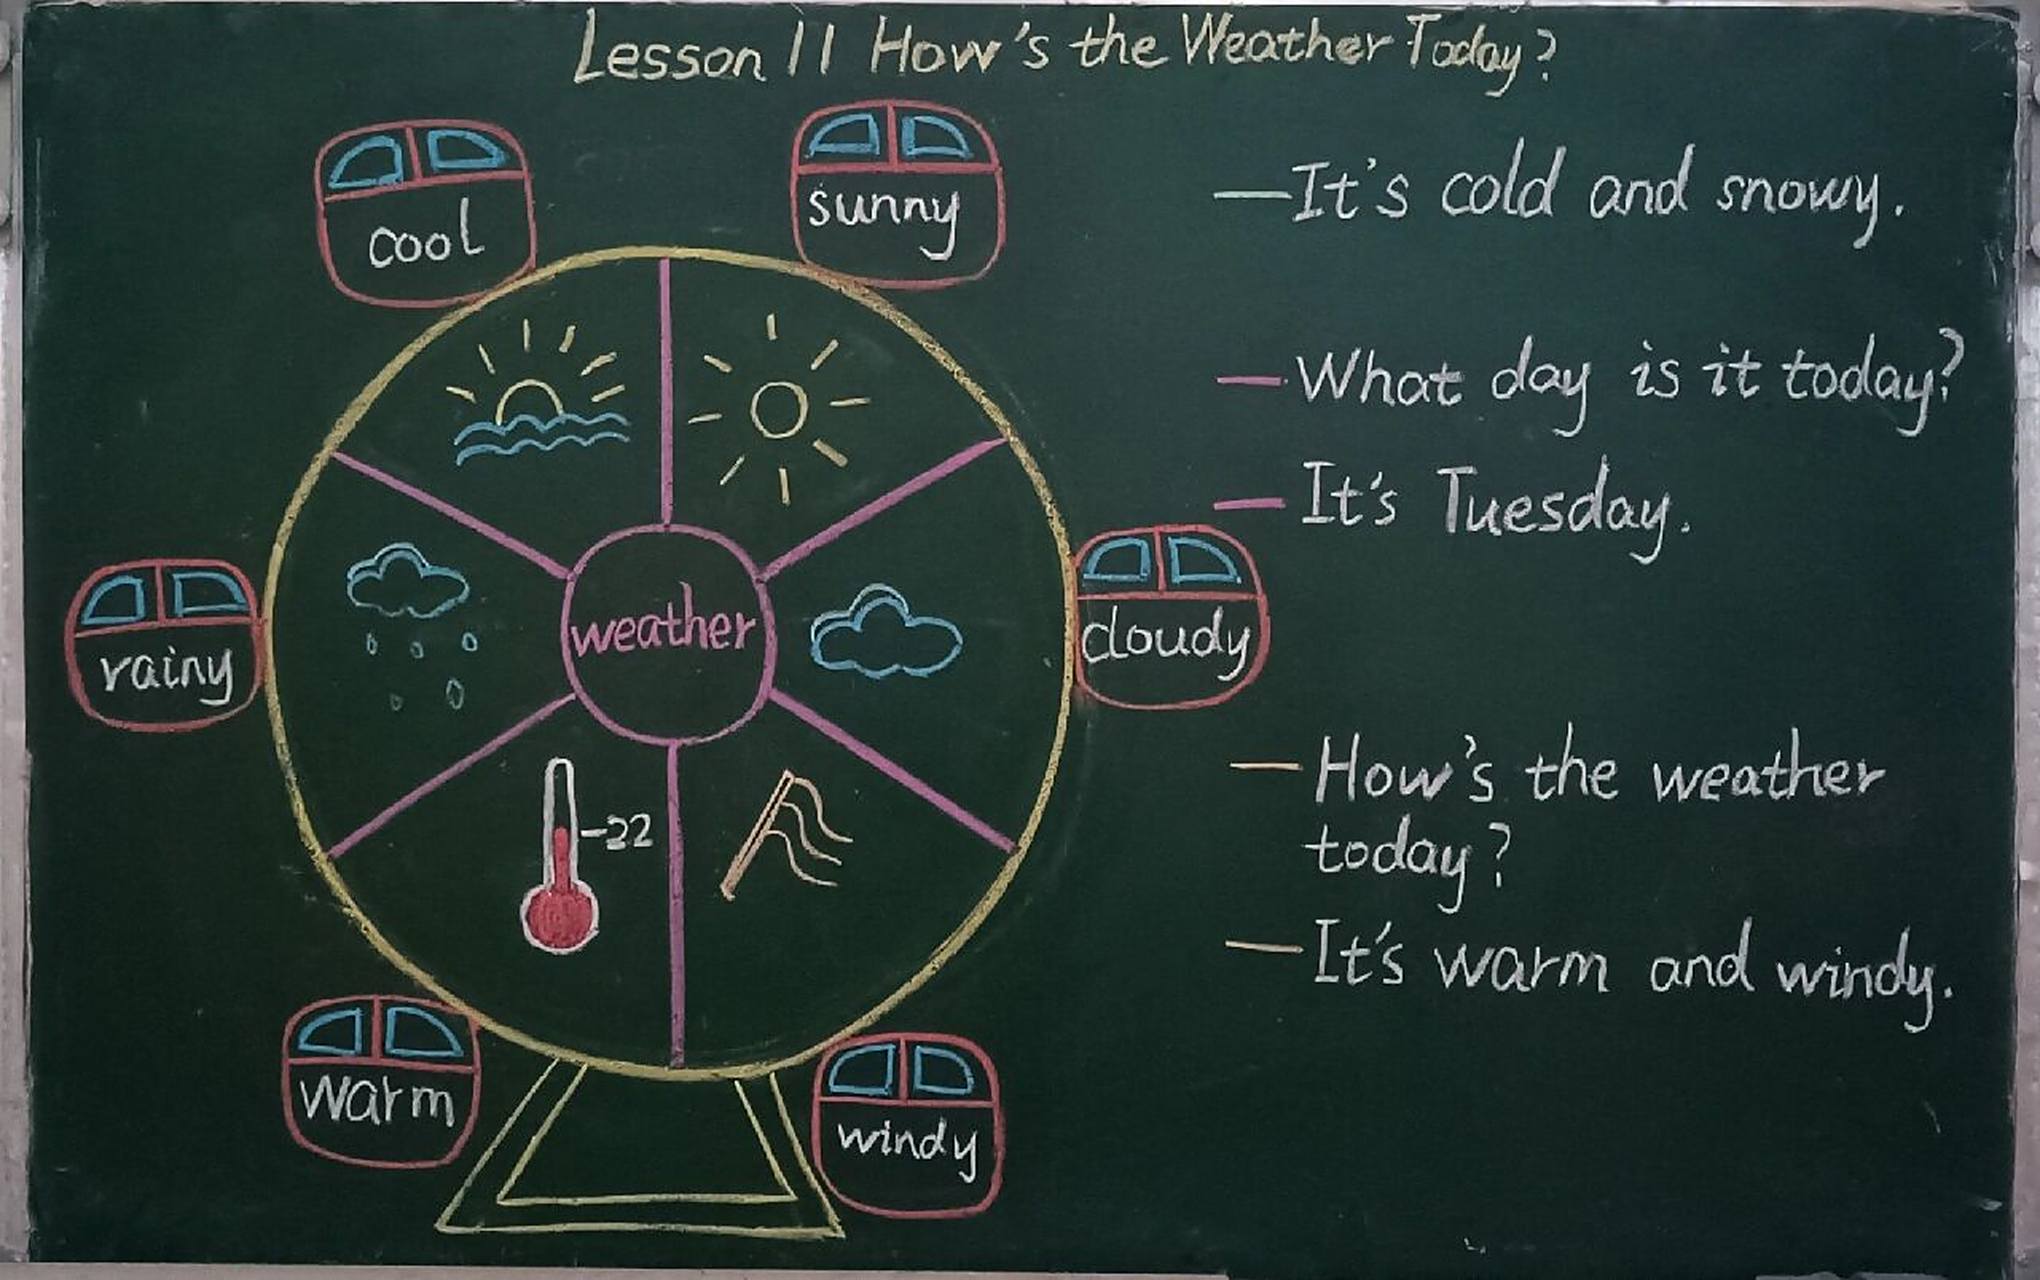 Lesson 11 How's the Weather Today?
cool
sunny
rainy
weather
cloudy
-22
warm
windy
—It's cold and snowy.
—What day is it today?
—It's Tuesday.
—How's the weather
today?
—It's warm and windy.